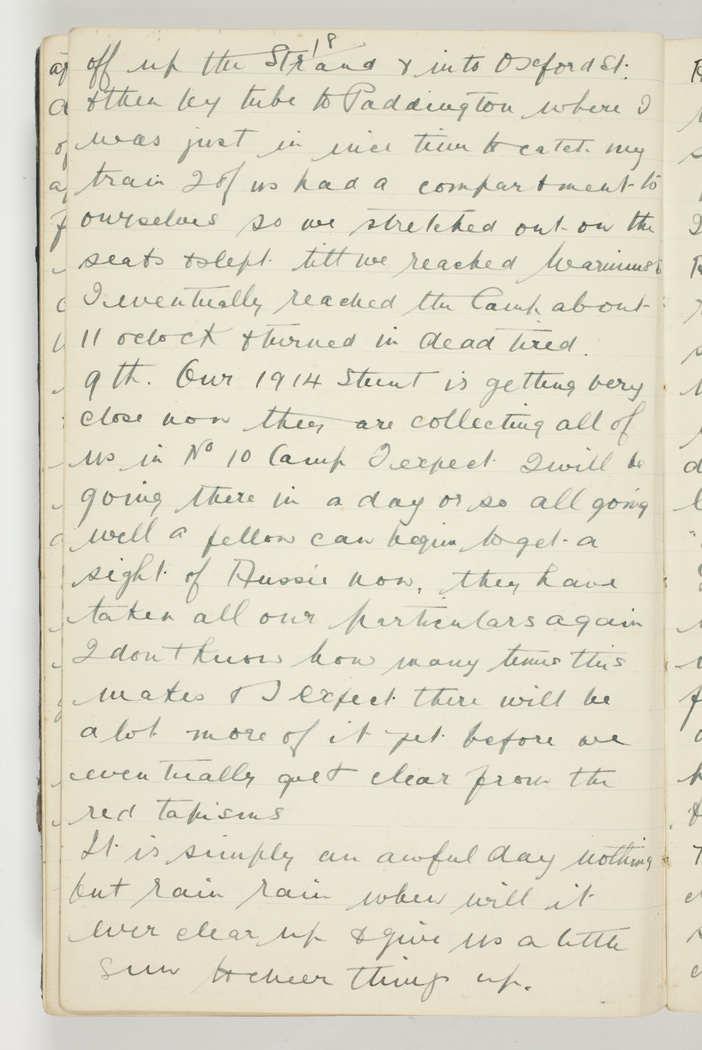 18
off up the Strand & into Oxford St.
& then by tube to Paddington where I
was just in nice time to catch my
train 2 of us had a compartment to
ourselves so we stretched out on the
seats & slept till we reached Warminst
I eventually reached the Camp about
11 oclock & turned in dead tired.
9th. Our 1914 Stunt is getting very
close now they are collecting all of
us in No 10 Camp I expect I will be
going there in a day or so all going
well a fellow can begin to get a
sight of Aussie now, they have
taken all our particulars again
I dont know how many times this
makes & I expect there will be
a lot more of it yet before we
eventually get clear from the
red tapisms
It is simply an awful day nothing
but rain rain when will it
ever clear up & give us a little
sun to cheer things up.